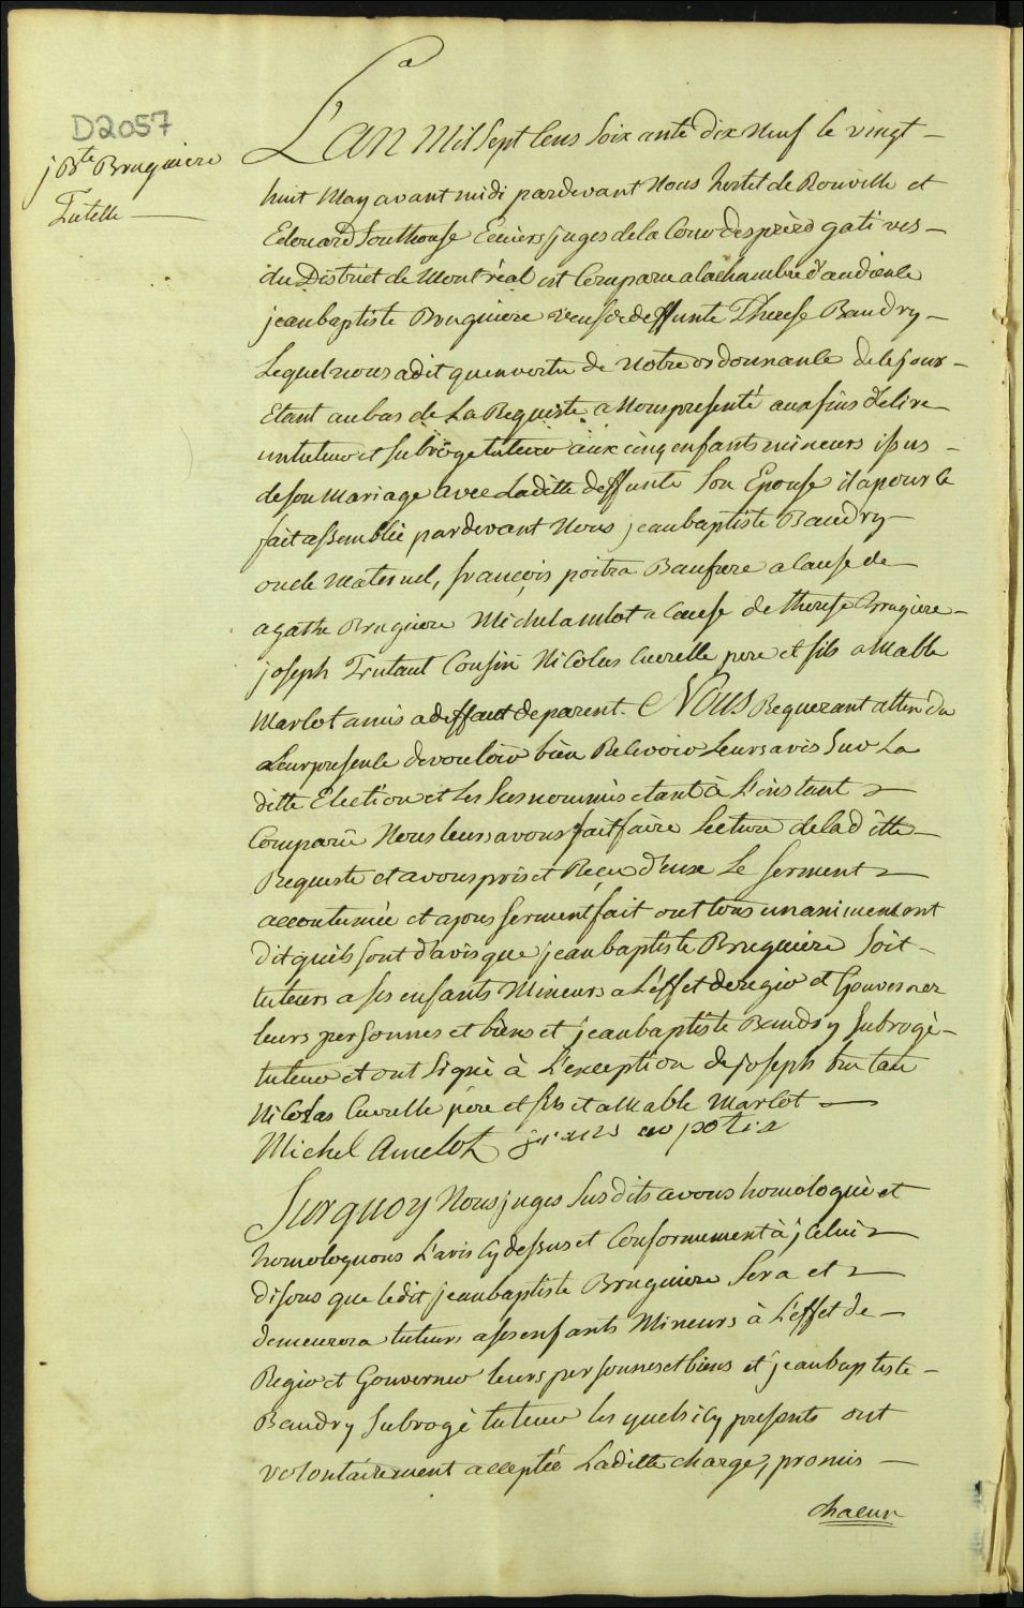 D2057
jBte Bruguiere
Tutelle
L'an Mil Sept Cens Soixante dix Neuf le vingt
huit May avant midi pardevant Nous hertel de Rouville et
Edouard Southouse Ecuiers juges de la Cour des prèrogatives
du District de Montréal est Comparu a la chambre d'audience
jean baptiste Bruguiere veuf de deffunte Therese Baudry
Lequel nous a dit qu'en vertu de Notre ordonnance de ce jour
Etant au bas de La Requiste a Nous presenté aux fins d'elire
un tuteur et subrogé tuteur aux cinq enfants mineurs issus
de son Mariage avec Laditte deffunte Son Epouse il a pour ce
fait assemblée pardevant Nous jean baptiste Baudry
oncle maternel, françois poitra Baufrere a Cause de
agathe Bruguiere Michel amlot a Cause de therese Brugiere
joseph Trutaut Cousin Nicolas Cuvrelle pere et fils aMable
Marlot amis a deffaut de parent. Nous Requerant attendu
Leur presence de vouloir bien Recevoir Leurs avis Sur La
ditte Election et Les Susnommés etant à L'instant
Comparü Nous leurs avons fait faire Lecture de lad itte
Requeste et avons pris et Reçu d'eux Le serment
accoutumée et apres serment fait ont tous unanimement
dit quils sont d'avis que jean baptiste Bruguiere Soit
tuteurs a ses enfants Mineurs a L'effet de regir et Gouverner
leurs personnes et biens et jean baptiste Baudry Subrogé
tuteur et ont Signé à L'exception de joseph trutau
Nicolas Cuvrelle pere et fils et aMable Marlot
Michel Amelot
Sur quoy Nous juges Susdits avons homologué et
homologuons L'avis Cy dessus et Conformement à jCelui
disons que ledit jean baptiste Bruguiere Sera et
demeurera tuteurs a ses enfants Mineurs à L'effet de
Regir et Gouverner leurs personnes et biens et jean baptiste
Baudry Subrogé tuteur les quels icy presents ont
volontairement acceptée Laditte charge, promis
chacun